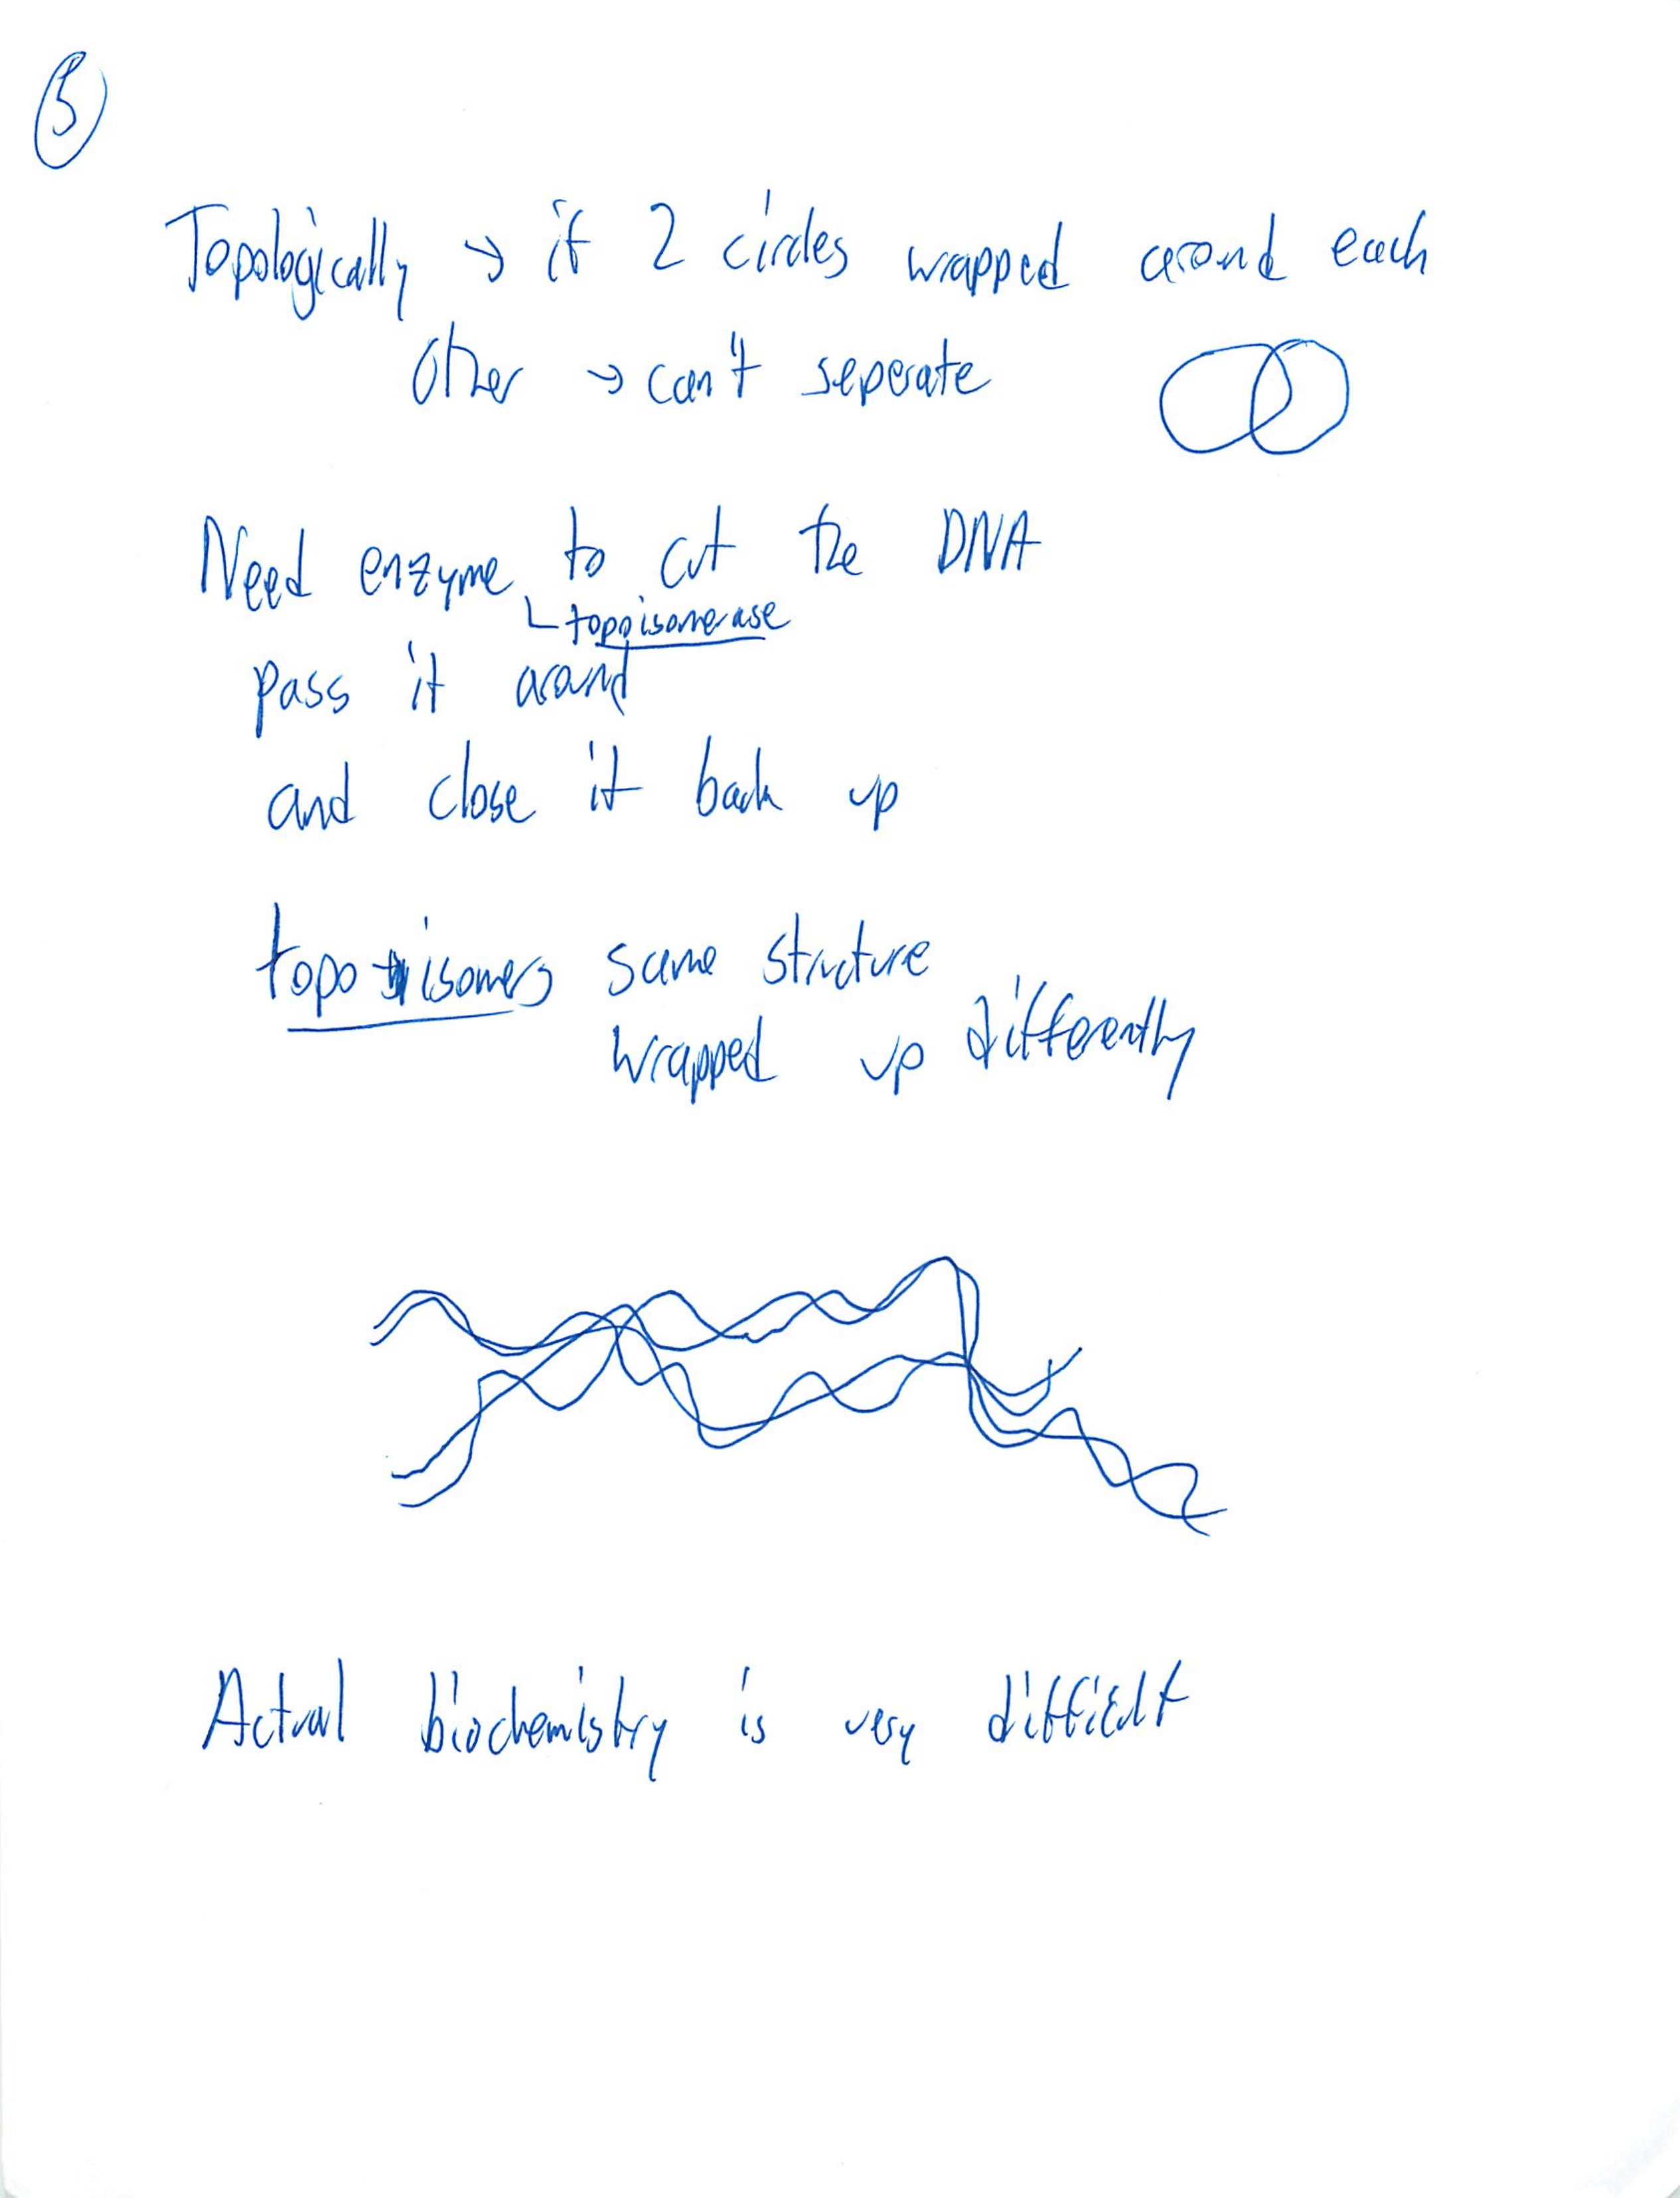 5
Topologically → if 2 circles wrapped around each
other → can't seperate
Need enzyme to cut the DNA
topoisomerase
pass it around
and close it back up
topo isomers same structure
wrapped up differently
Actual biochemistry is very difficult